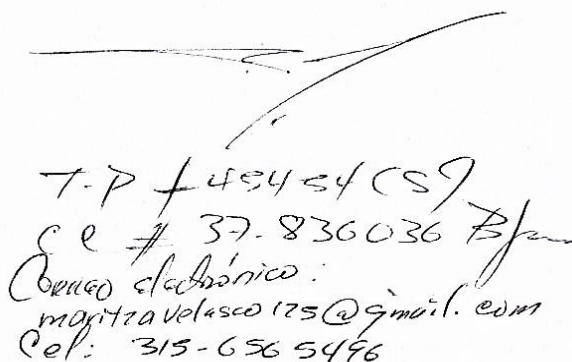 T.P # 45454 CSJ
CC # 37.836036 B/
Correo electrónico:
maritzavelasco125@gmail.com
Cel: 315-6565496